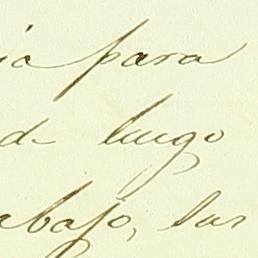 ia para
de luego
abajo, sus